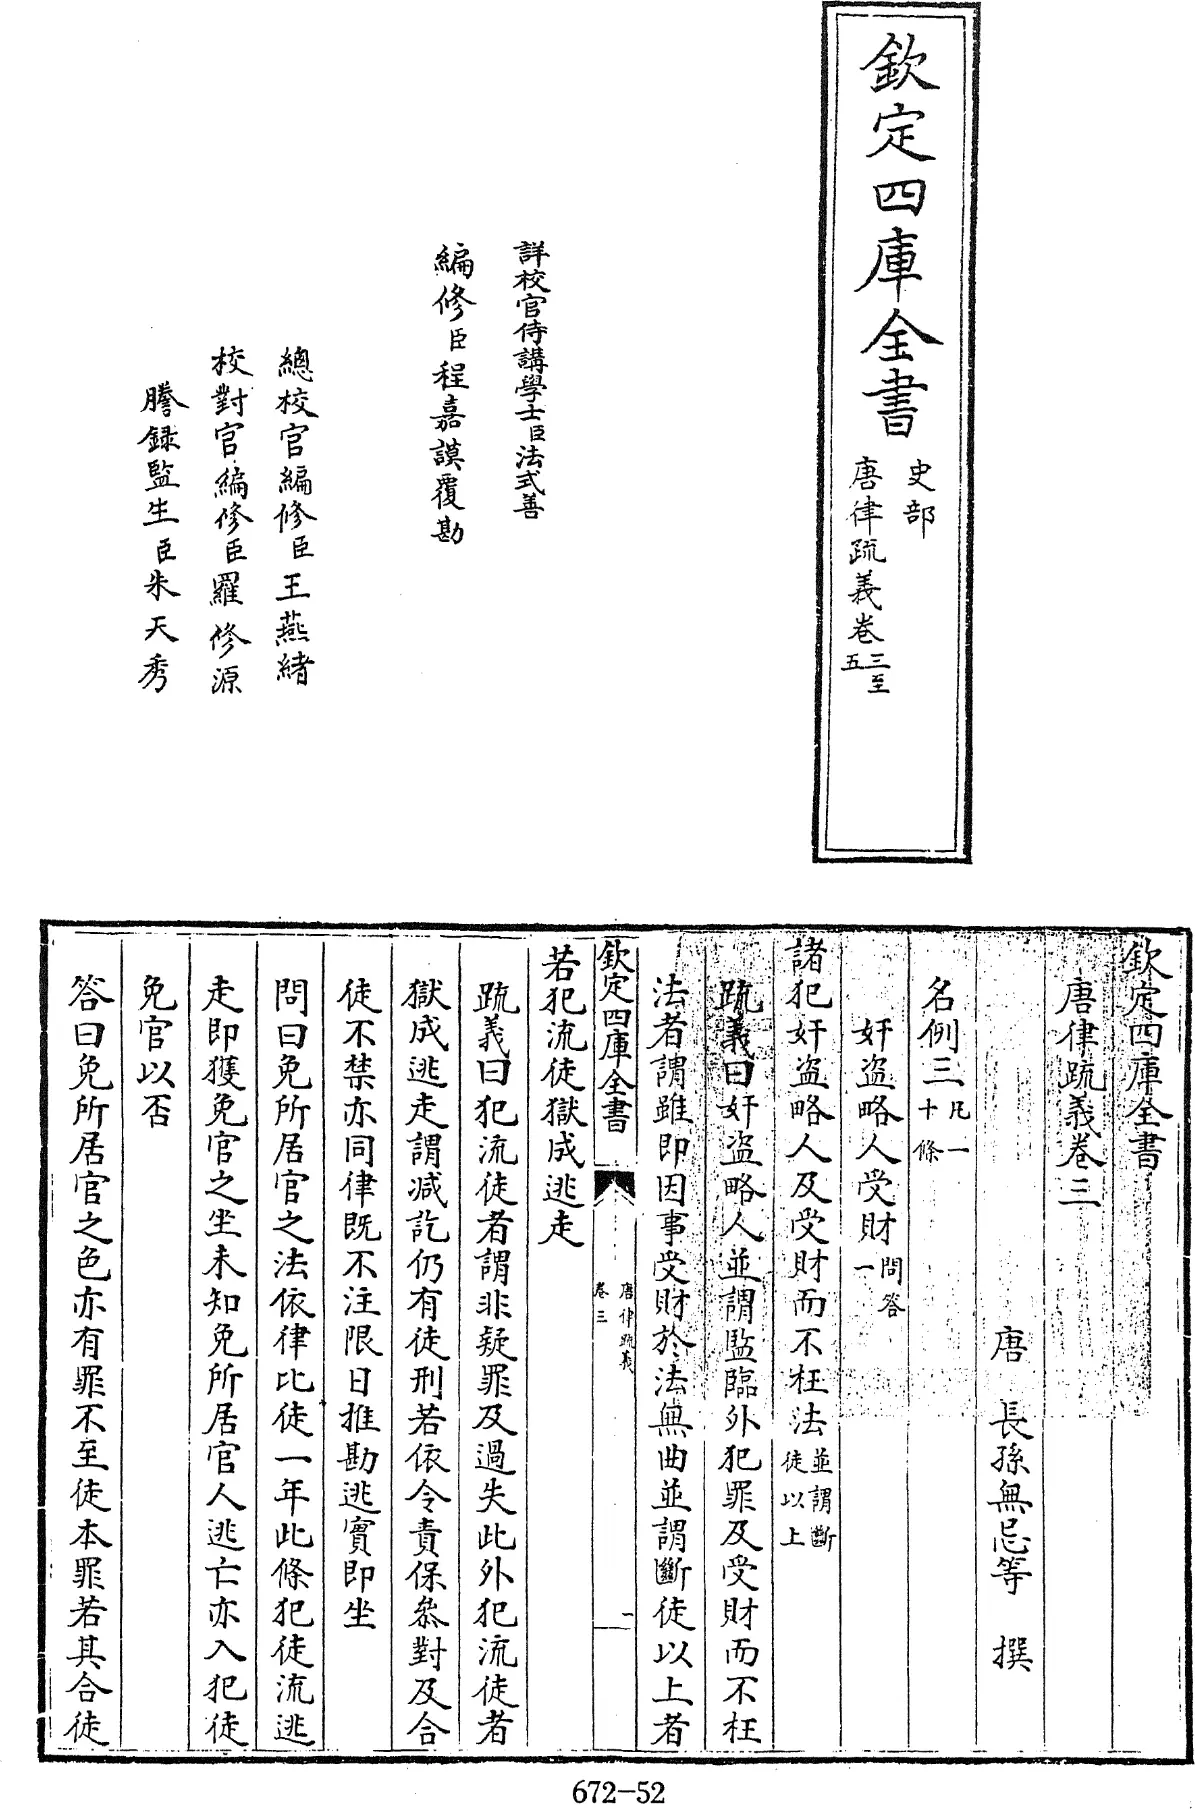 欽定四庫全書
史部
唐律疏義卷三至五
詳校官侍講學士臣法式善
編修臣程嘉謨覆勘
總校官編修臣王燕緒
校對官編修臣羅修源
謄録監生臣朱天秀
欽定四庫全書
唐律疏義卷三
唐 長孫無忌等 撰
名例三凡一十條
奸盗略人受財問答一
諸犯奸盗略人及受財而不枉法並謂斷徒以上
疏義曰奸盗略人並謂監臨外犯罪及受財而不枉
法者謂雖即因事受財於法無曲並謂斷徒以上者
欽定四庫全書
唐律疏義
卷三
一
若犯流徒獄成逃走
疏義曰犯流徒者謂非疑罪及過失此外犯流徒者
獄成逃走謂減訖仍有徒刑若依令責保叅對及合
徒不禁亦同律既不注限日推勘逃實即坐
問曰免所居官之法依律比徒一年此條犯徒流逃
走即獲免官之坐未知免所居官人逃亡亦入犯徒
免官以否
答曰免所居官之色亦有罪不至徒本罪若其合徒
672-52